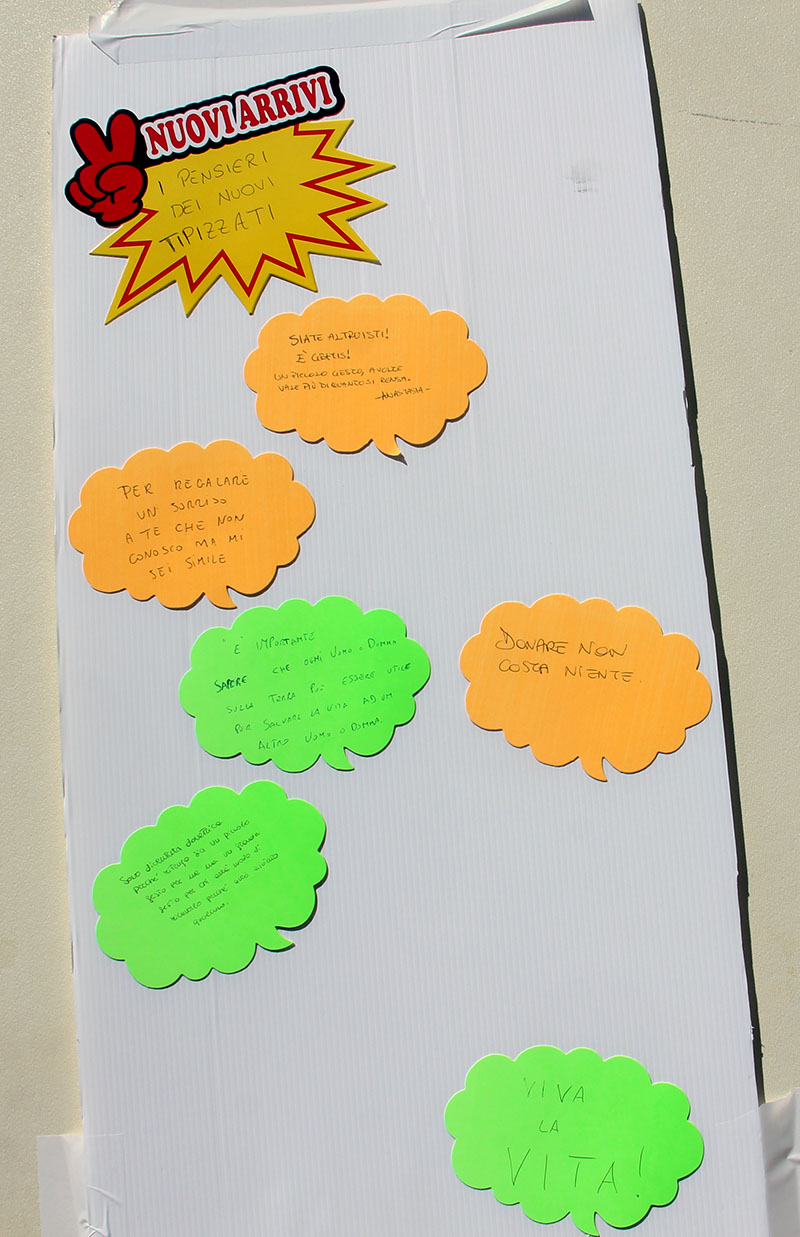 NUOVI ARRIVI
I PENSIERI
DEI NUOVI
TIPIZZATI
SIATE ALTRUISTI!
È GRATIS!
UN PICCOLO GESTO, A VOLTE
VALE PIÙ DI QUANTO SI PENSA.
-ANASTASIA-
PER REGALARE
UN SORRISO
A TE CHE NON
CONOSCO MA MI
SEI SIMILE
È IMPORTANTE
SAPERE CHE OGNI UOMO O DONNA
SULLA TERRA PUÒ ESSERE UTILE
PER SALVARE LA VITA AD UN
ALTRO UOMO O DONNA.
DONARE NON
COSTA NIENTE.
Sono diventata donatrice
perché ritengo sia un piccolo
gesto per me ma un grande
gesto per chi
perché
qualcuno.
VIVA
LA
VITA!